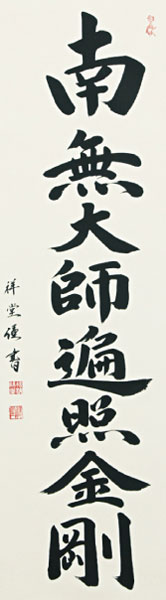 南無大師遍照金剛
祥堂僊書